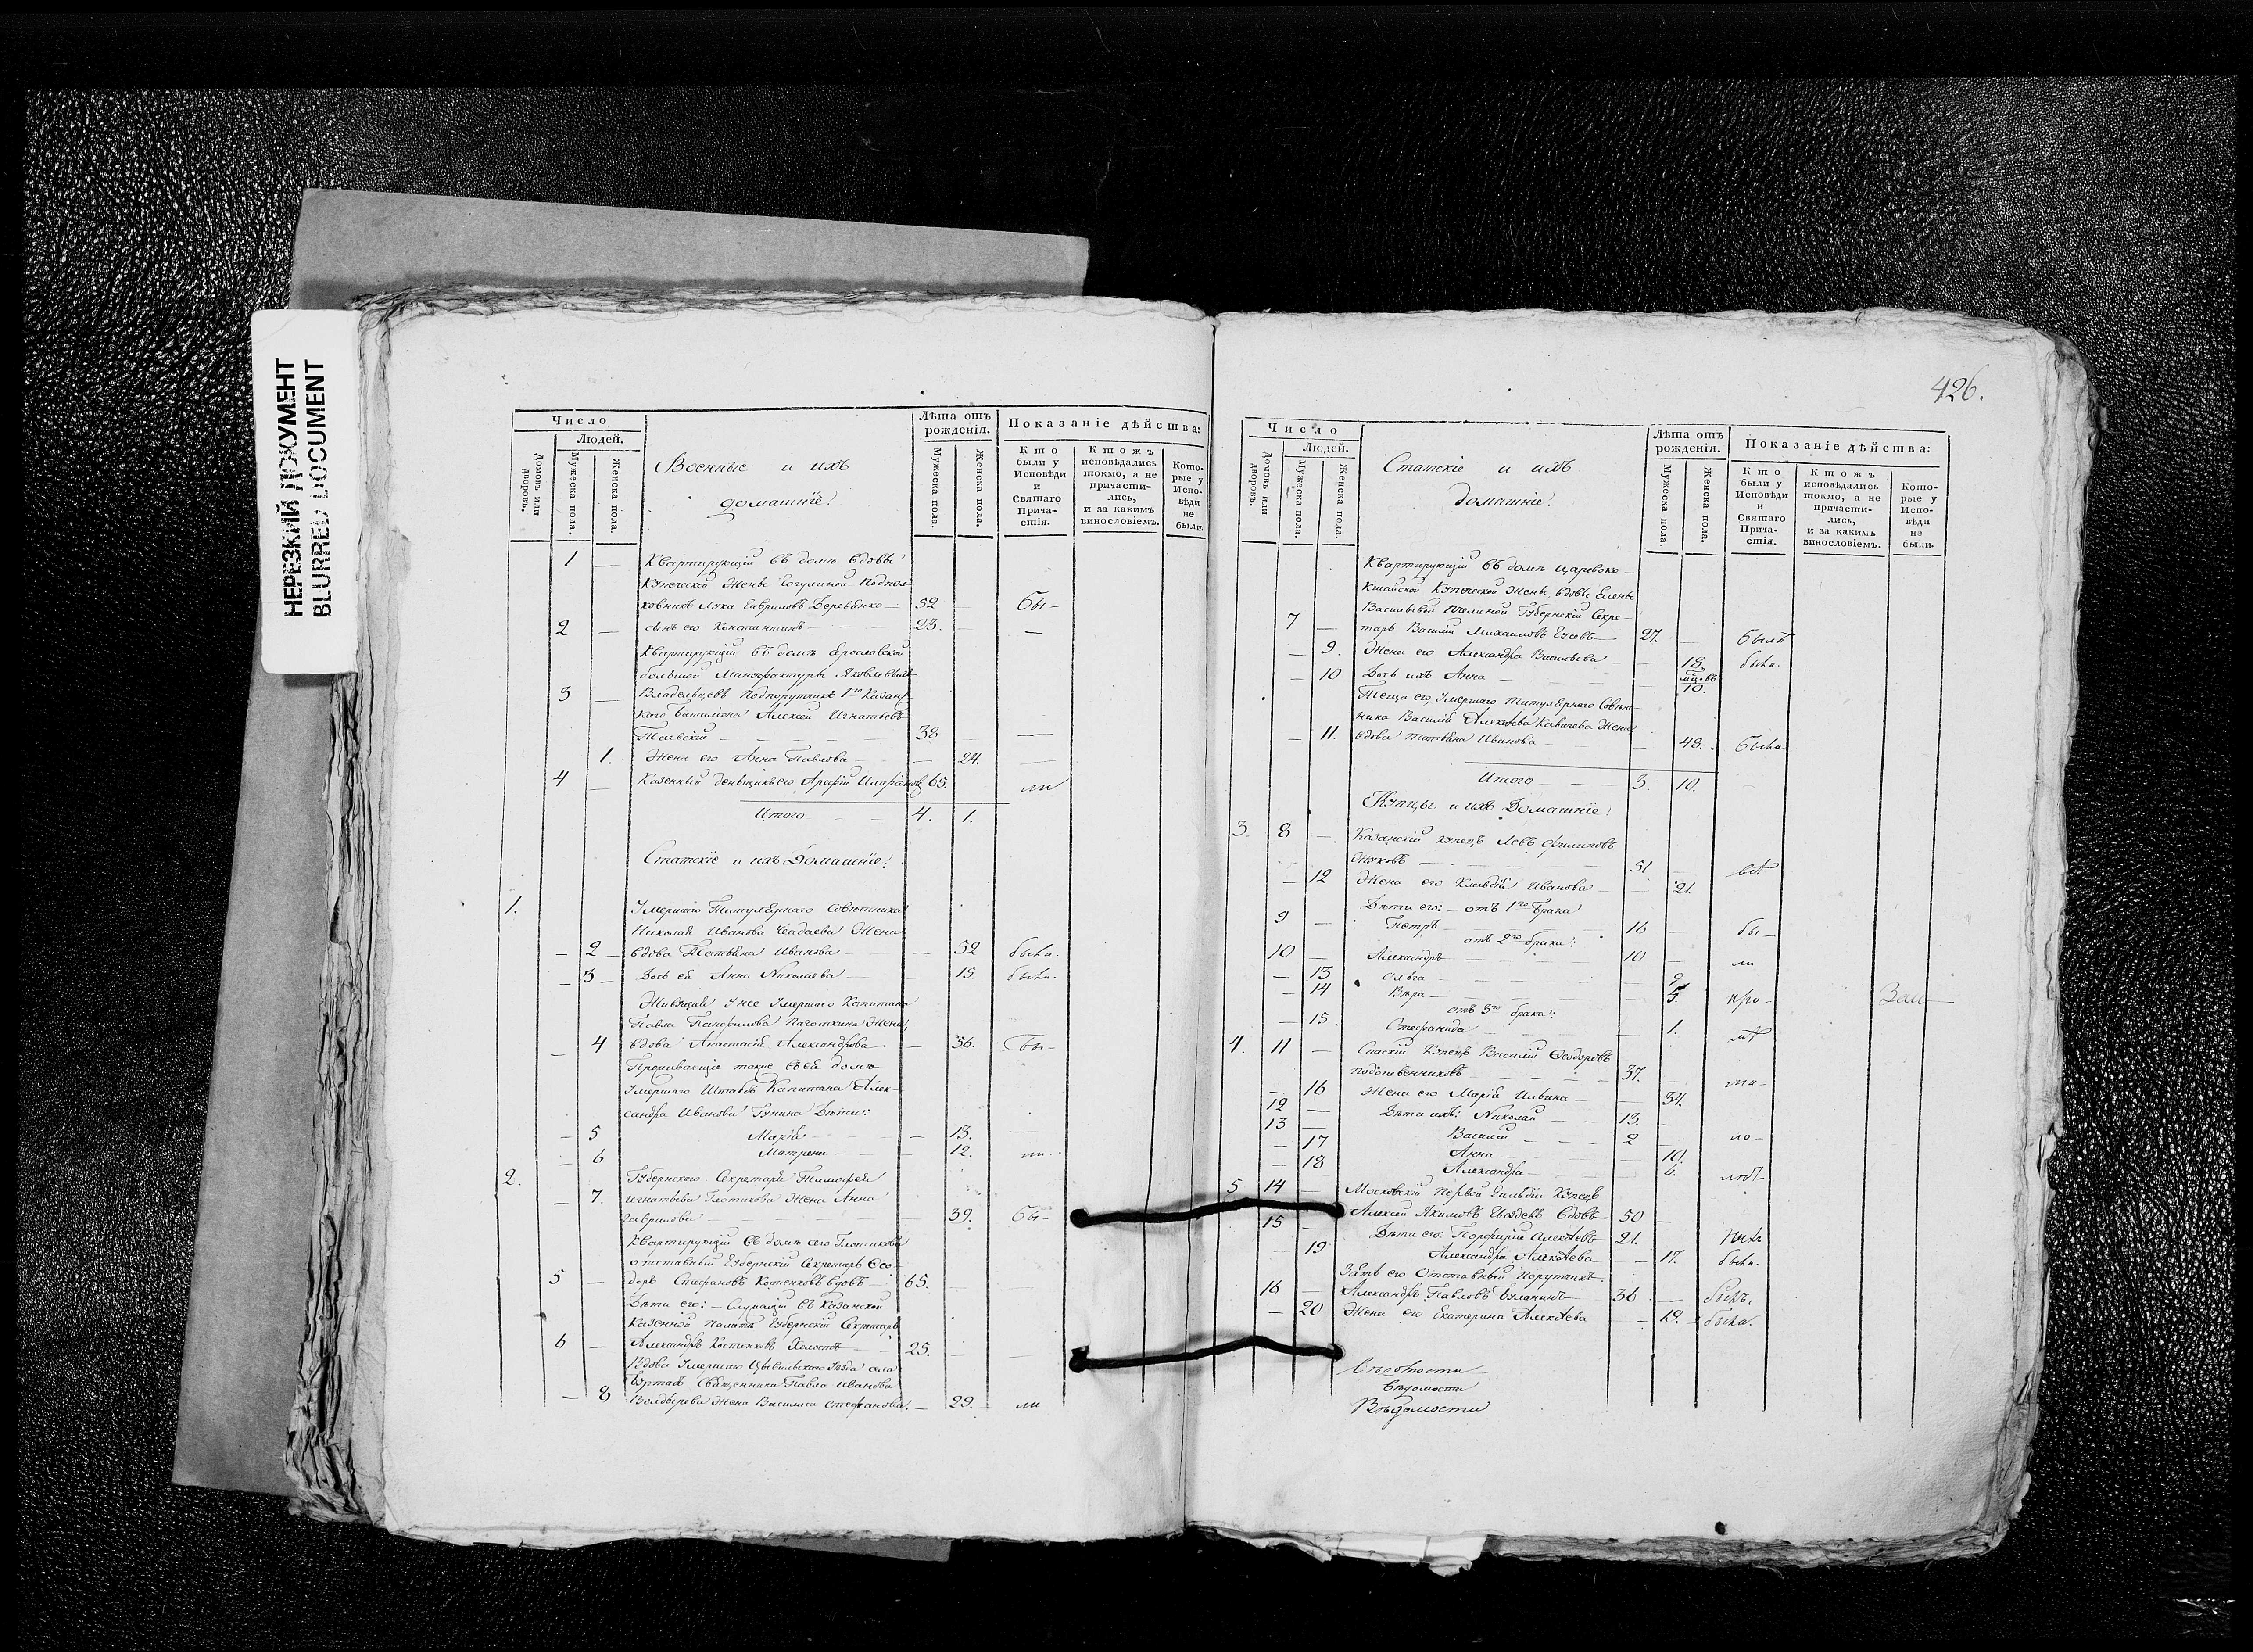 НЕРЕЗКИЙ ДОКУМЕНТ
BLURRED DOCUMENT
Число
Людей.
Домовъ или дворовъ.
Мужеска пола.
Женска пола.
Военные и ихъ
домашніе
Лѣта отъ рожденія.
Мужеска пола.
Женска пола.
Показаніе дѣйства:
Кто были у Исповѣди и Святаго Прича-стія.
Ктожъ исповѣдались токмо, а не причасти-лись, и за какимъ винословіемъ.
Кото-рые у Испо-вѣди не были.
1 — Квартирующій въ домѣ вдовы
Купеческой жены Подпол-
ковникъ Лука Гавриловъ Деревянко — 52 — бы-
2 — сынъ его Константинъ — 23. — —
Квартирующій въ домѣ Ярославской
большой Мануфактуры Яковлевыхъ
3 — Владельцевъ Подпорутчикъ 1го Казан
кого баталіона Алексей Игнатьевъ
38 — —
1. Жена его Анна Павлова — 24. —
4 — Казенный деньщикъ его 65. ли
Итого — 4. 1.
Статскіе и ихъ Домашніе
1. Умершаго Титулярнаго Совѣтника
Николая Иванова Чаадаева Жена
— 2 — вдова Татьяна Иванова — 52 была.
— 3 — Дочь ея Анна Николаева — 15. была.
Живущая у нее Умершаго Капитана
Павла Панфилова Жена
— 4 вдова Анастасія Александрова — 56. бы-
Проживающіе также въ ея домѣ
Умершаго Штабсъ Капитана Алек-
сандра Иванова Дѣти:
— 5 Марія — 13. —
— 6 Матрена — 12. ли.
2. Губернскаго Секретаря Тимофея
— 7. Игнатьева Глотикова Жена Анна
Гаврилова — 39. бы-
Квартирующій въ домѣ сего Глотикова
отставный Губернскій Секретарь Ѳео
5 — доръ Стефановъ вдовъ — 65. —
Дѣти его: — Служащій въ Казанской
Казенной Палатѣ Губернскій Секретарь
6 — Александръ Холостъ — 25. — —
Вдова Умершаго Цывильскаго Уѣзда села
Священника Павла Иванова
— 8 Болдырева Жена Василиса Стефанова. — 29. ли
426.
Число
Людей.
Домовъ или дворовъ.
Мужеска пола.
Женска пола.
Статскіе и ихъ
Домашніе
Лѣта отъ рожденія.
Мужеска пола.
Женска пола.
Показаніе дѣйства:
Кто были у Исповѣди и Святаго Прича-стія.
Ктожъ исповѣдались токмо, а не причасти-лись, и за какимъ винословіемъ.
Кото-рые у Испо-вѣди не были.
Квартирующій въ домѣ Царевоко-
кшайской Купеческой жены, вдовы Елены
Васильевой Пчелиной Губернскій Секре-
7 — тарь Василій Михайловъ 27. — былъ
— 9. Жена его Александра Васильева — 18. была.
— 10 Дочь ихъ Анна — мцовъ 10.
Теща его, Умершаго Титулярнаго Совѣт-
ника Василія Алексѣева Жена
— 11. вдова Татьяна Иванова — 48. была
Итого — 3. 10.
Купцы и ихъ Домашніе
3. 8 — Казанскій купецъ Левъ Филиповъ
Жуковъ — 51 —
— 12 Жена его Клавдія Иванова — 21.
Дѣти его: — отъ 1го брака
9 — Петръ — 16 — бы-
отъ 2го брака:
10 — Александръ — 10 — ли
— 13 Ольга — 9
— 14 Вѣра — 5. про-
отъ 3го брака:
— 15. Стефанида — 1.
4. 11 — Спаскій Купецъ Василій Ѳеодоровъ
Подошвенниковъ — 37. — ли-
— 16 Жена его Марія Ильина — 34.
12 — Дѣти ихъ: Николай — 13. —
13 — Василій — 2 — ло-
— 17 Анна — 10.
— 18 Александра — 6.
5 14 — Московскій первой гильдіи Купецъ
Алексей Якимовъ вдовъ — 50 —
15 — Дѣти его: Порфирій Алексѣевъ — 21.
— 19 Александра Алексѣева — 17. была.
Зять его Отставный Порутчикъ
16 — Александръ Павловъ 36 — былъ.
— 20 Жена его Екатерина Алексѣева — 19. — была.
Вѣдомости
Вѣдомости